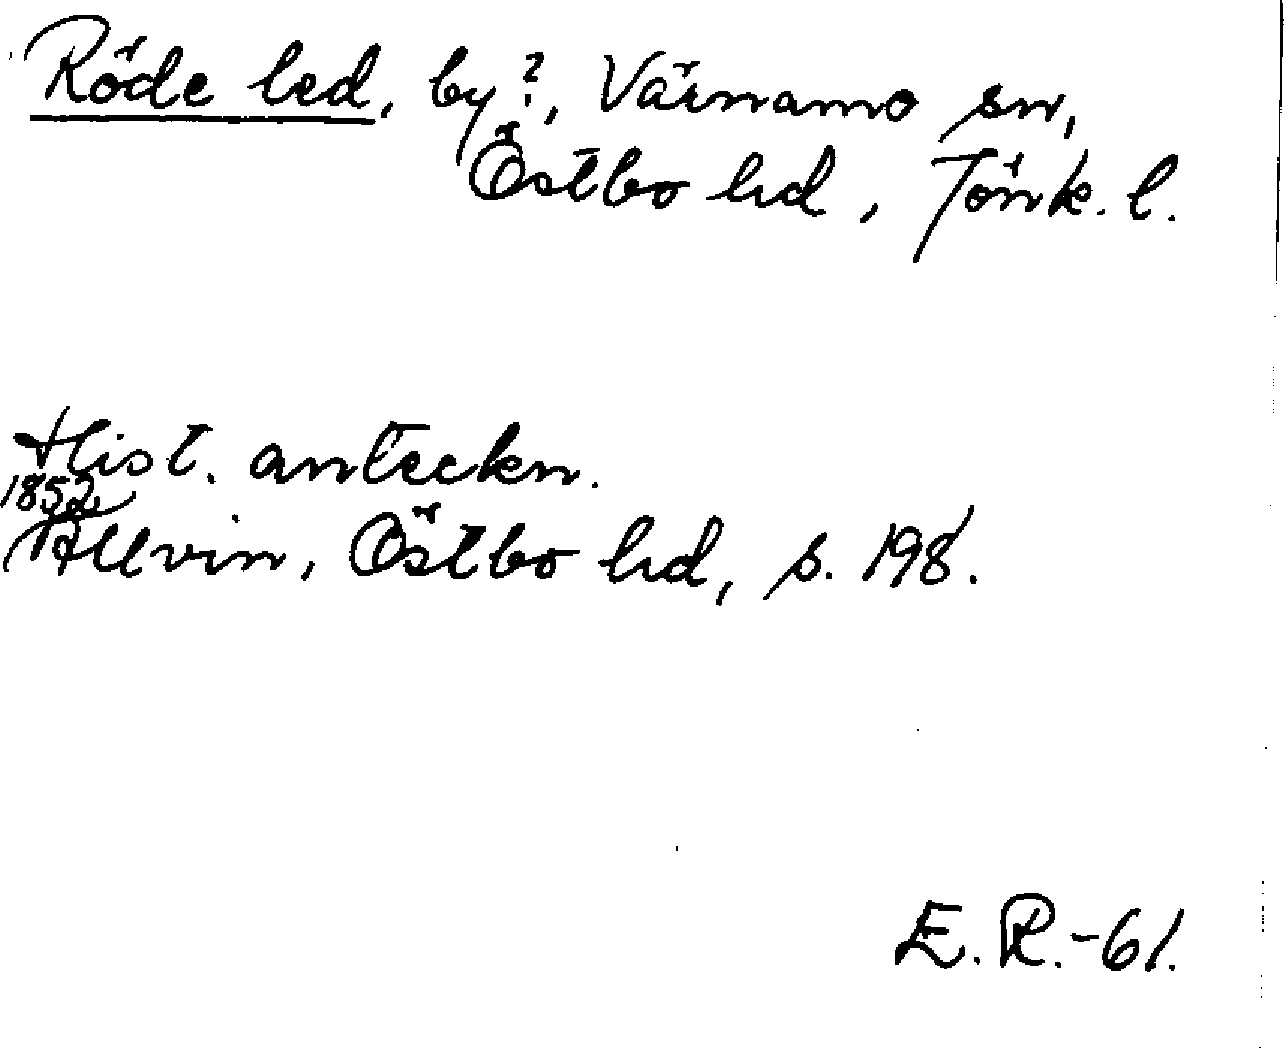 Röde led, by?, Värnamo sn,
Östbo hd, Jönk. l.
Hist. anteckn.
1852
Allvin, Östbo hd, s. 198.
E. R.-61.